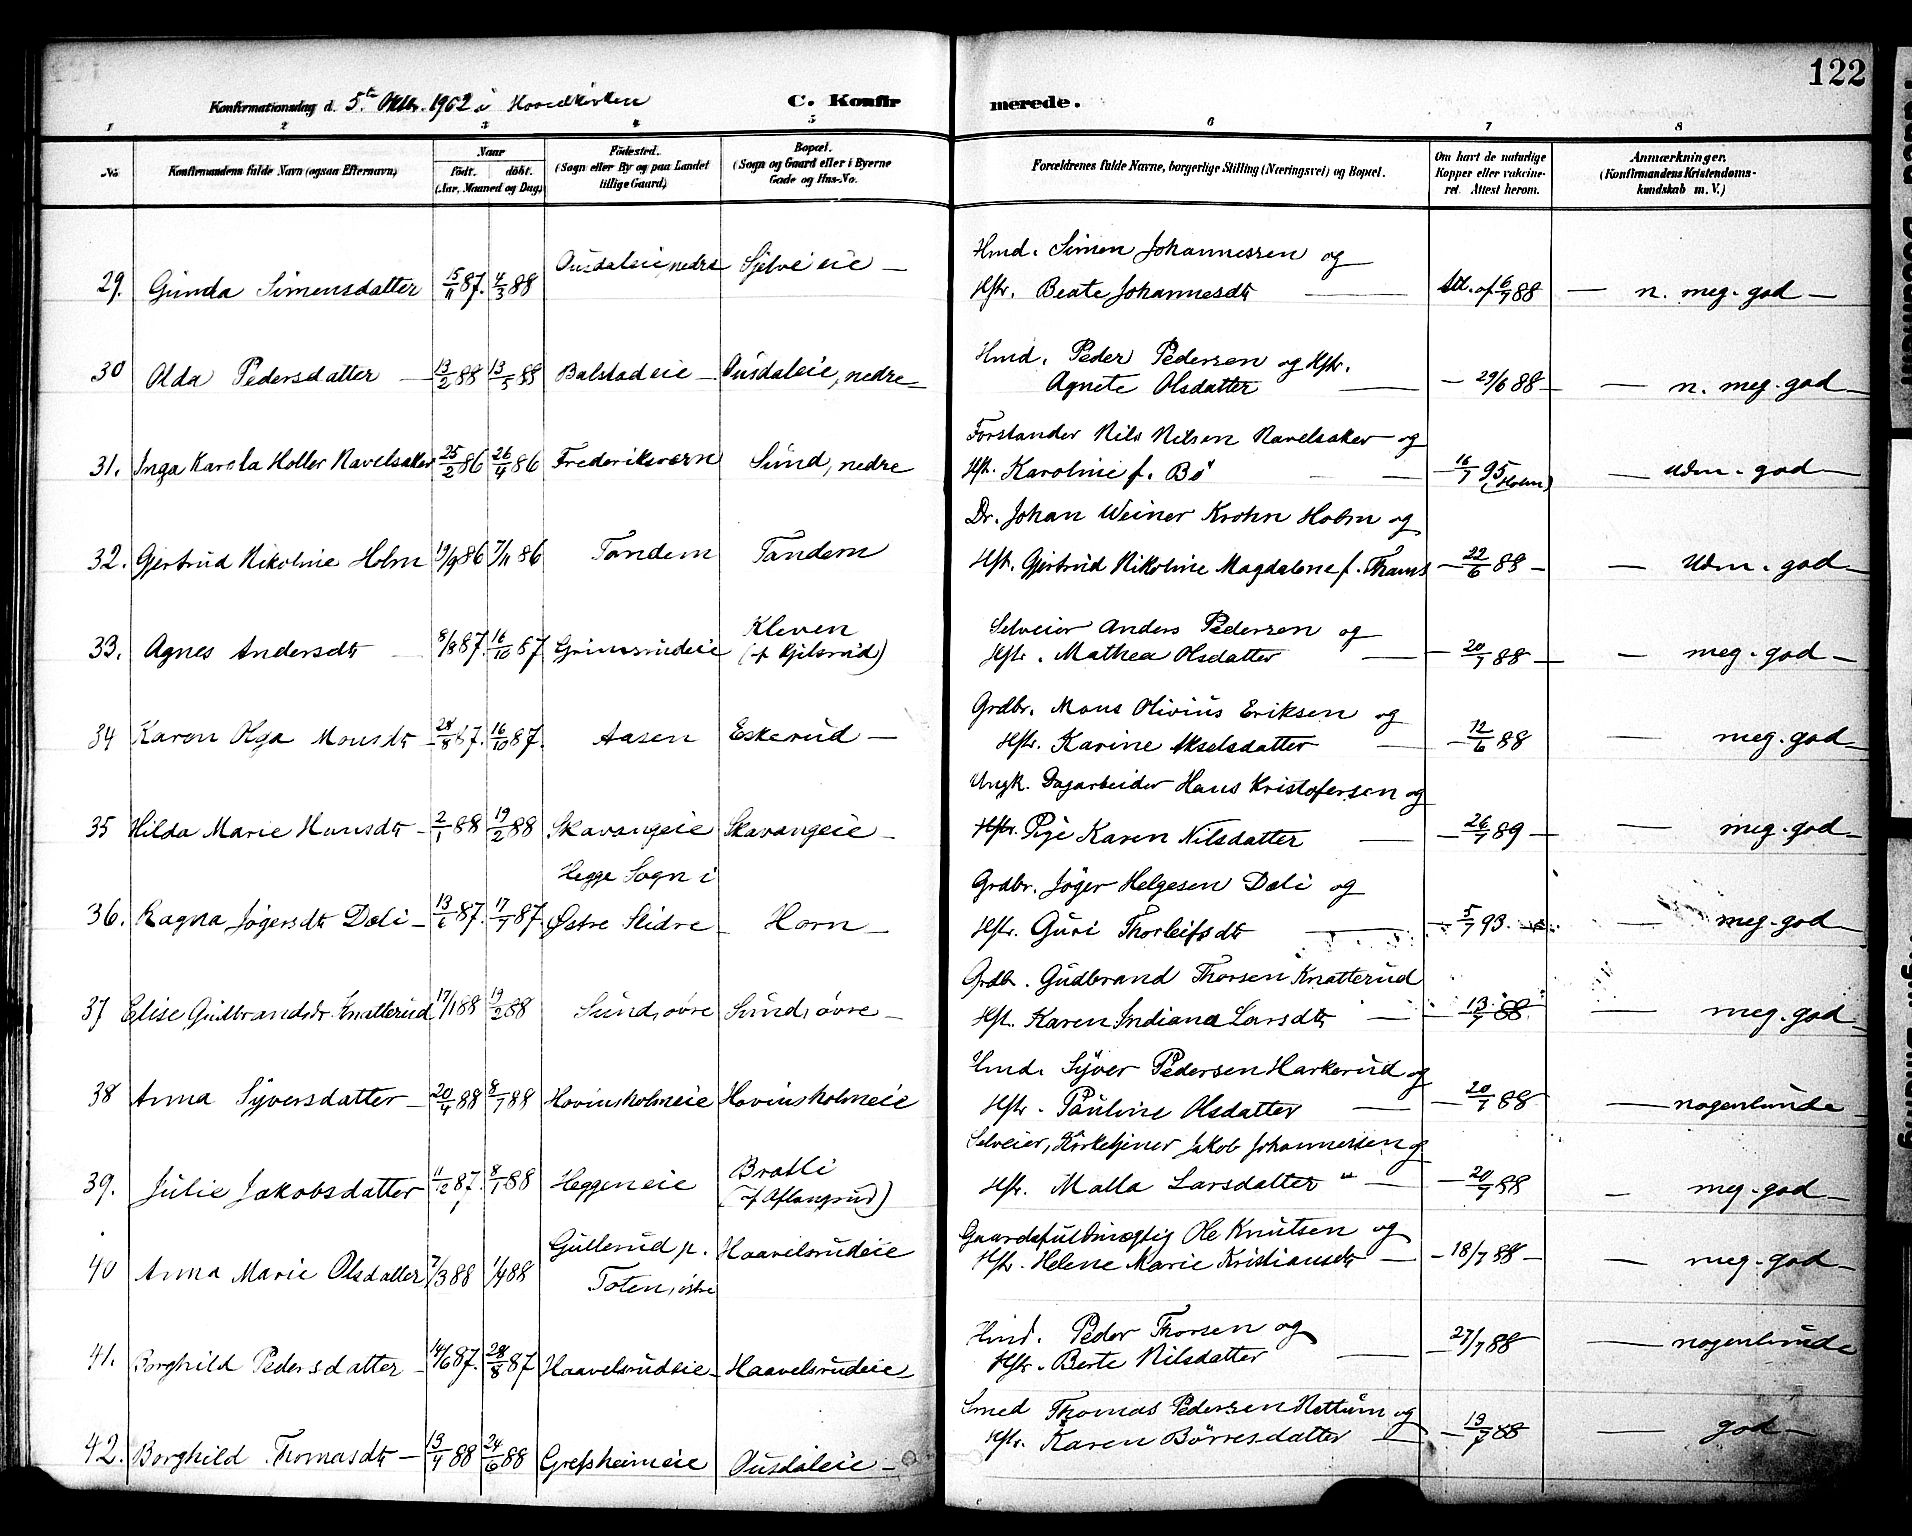 122
Konfirmationsdag d. 5te Oktbr. 1902 i Hovedkirken
C. Konfirmerede.
1 2 3 4 5 6 7 8
No
Konfirmandens fulde Navn (ogsaa Efternavn).
Naar
födt. döbt.
(Aar, Maaned og Dag)
Födested.
(Sogn eller By og paa Landet tillige Gaard.)
Bopæl.
(Sogn og Gaard eller i Byerne Gade og Hus-No.
Forældrenes fulde Navne, borgerlige Stilling (Næringsvei) og Bopæl.
Om havt de naturlige Kopper eller vaccineret. Attest herom.
Anmærkninger.
(Konfirmandens Kristendomskundskab m. V.)
29. Gunda Simensdatter 15/11 87. 4/3 88 Ousdaleie nedre Sjelve eie — Hmd. Simen Johannessen og
Hstr. Beate Johannesdtr — Att. af 6/7 88 — n. meg. god —
30 Olda Pedersdatter — 13/2 88 13/5 88 Balstadeie — Ousdaleie, nedre — Hmd. Peder Pedersen og Hstr.
Agnete Olsdatter — 29/6 88 — n. meg. god —
31. Inga Karola Holler Navelsaker 25/2 86 26/4 86 Frederiksværn Sund, nedre Forstander Nils Nilsen Navelsaker og
Hst. Karoline f. Bö — 16/7 95 (Holm) — udm. god —
32. Gjertrud Nikoline Holm 19/9 86 7/11 86 Tandem Tandem Dr. Johan Weiner Krohn Holm og
Hst. Gjertrud Nikoline Magdalene f. Thams — 22/6 88 — Udm. god —
33. Agnes Andersdtr 8/8 87. 16/10 87 Grimsrudeie Kleven Selveier Anders Pedersen og
(af Kjilsrud) Hstr. Mathea Olsdatter — 20/7 88 — meg. god —
34 Karen Olga Monsdtr 28/8 87. 16/10 87. Aasen Eskerud — Grdbr. Mons Olivius Eriksen og
Hstr. Karine Akselsdatter — 12/6 88 — meg. god —
35 Hilda Marie Hansdtr — 2/1 88 19/2 88 Skavangeie Skavangeie — Ungk. Dagarbeider Hans Kristofersen og
Hstr. Pige Karen Nilsdatter — 26/7 89 — meg. god —
36. Ragna Jögersdtr Dæli — 13/6 87. 17/7 87. Hegge Sogn i Östre Slidre — Horn — Grdbr. Jöger Helgesen Dæli og
Hstr. Guri Thorleifsdtr — 5/7 93. — meg. god —
37 Elise Gudbrandsdr. Knatterud 17/1 88 19/2 88 Sund, övre Sund, övre — Grdb. Gudbrand Thorsen Knatterud
Hst. Karen Indiana Larsdtr — 13/7 88. — meg. god —
38 Anna Syversdatter — 20/4 88 8/7 88 Hovinsholmeie Hovinsholmeie Hmd. Syver Pedersen Harkerud og
Hstr. Pauline Olsdatter — 20/7 88 — nogenlunde —
39. Julie Jakobsdatter 11/12 87. 8/1 88 Heggeneie Bratli Selveier, Kirketjener Jakob Johannessen og
(af Aflangrud) Hstr. Malla Larsdatter — 20/7 88 — meg. god —
40 Anna Marie Olsdatter 7/3 88 1/4 88 Gullerud p. Toten, östre Haavelsrudeie Gaardsfuldmægtig Ole Knutsen og
Hst. Helene Marie Kristiansdtr — 18/7 88 — meg. god —
41. Borghild Pedersdatter — 14/6 87. 28/8 87 Haavelsrudeie — Haavelsrudeie — Hmd. Peder Thorsen og
Hstr. Berte Nilsdatter — 27/7 88 — nogenlunde
42. Borghild Thomasdtr — 13/4 88 24/6 88 Grefsheimeie Ousdaleie — Smed Thomas Pedersen Nettum og
Hstr. Karen Börresdatter — 13/7 88 — god —